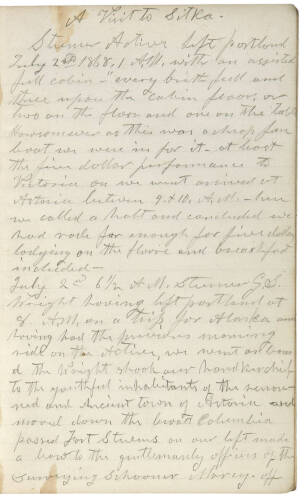 A Visit to Sitka.
Steamer Active left portland
July 2nd 1868, 1 A.M. with an assisted
full cabin - "every birth full and
three upon the cabin floor, or
two on the floor and one on the table
however as this was a cheap fare
boat we were in for it - at least
the five dollar performance to
Victoria on we went arrived at
Astoria between 9 & 10, A.M. - here
we called a halt and concluded we
had rode far enough for five dollars
lodging on the floor and breakfast
included -
July 2nd 6½ A.M. Steamer G.S.
Wright having left portland at
8. A.M. on a trip for Alaska and
having had the previous morning
ride on the Active, we went on board
the Wright shook our handkerchief
to the youthful inhabitants of the renow-
ned and Ancient town of Astoria and
moved down the broad Columbia
passed Fort Stevens on our left made
a bow to the gentlemanly officers of the
Surveying Schooner Marcy. off